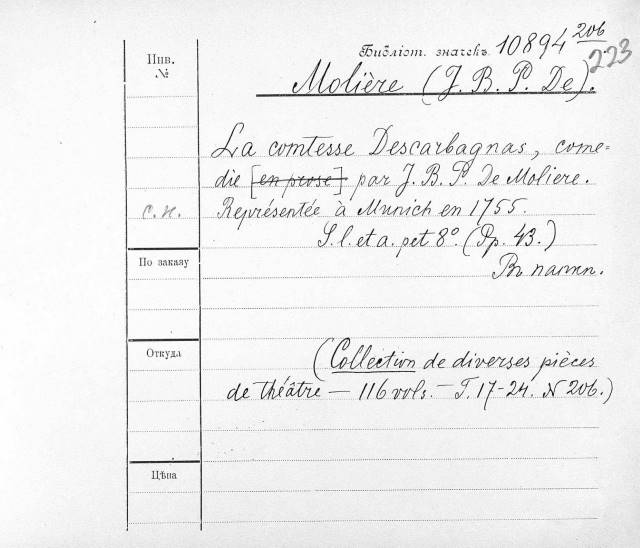 Инв.
№
Библіот. значекъ 10894 206.
223
Molière (J. B. P. De).
La comtesse Descarbagnas, come=
die [en prose] par J. B. P. De Moliere.
с. н.
Représentée à Munich en 1755.
S. l. et a. pet 8º. (Pp. 43.)
По заказу
Въ папкѣ.
Откуда
(Collection de diverses pièces
de théâtre — 116 vols. — T. 17-24. N 206.)
Цѣна